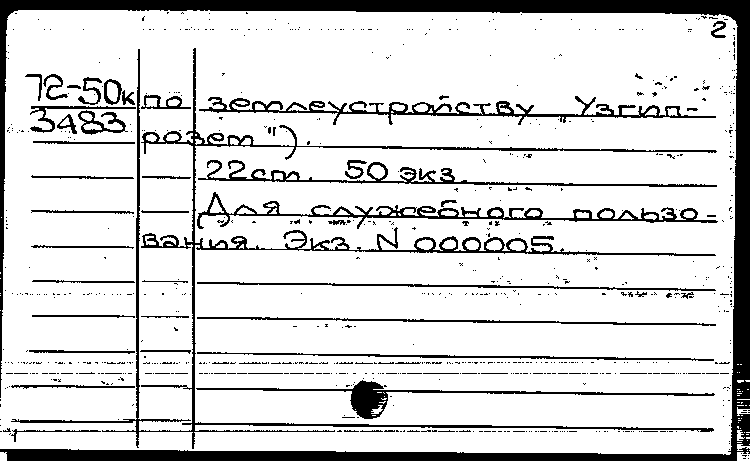 2
72-50к по землеустройству „Узгип-
3483 розем").
22 ст. 50 экз.
Для служебного пользо-
вания. Экз. N 000005.